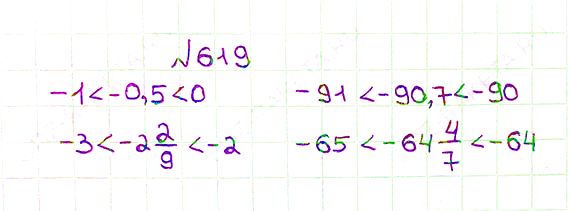 №619
-1 < -0,5 < 0 -91 < -90,7 < -90
-3 < -2 2/9 < -2 -65 < -64 4/7 < -64